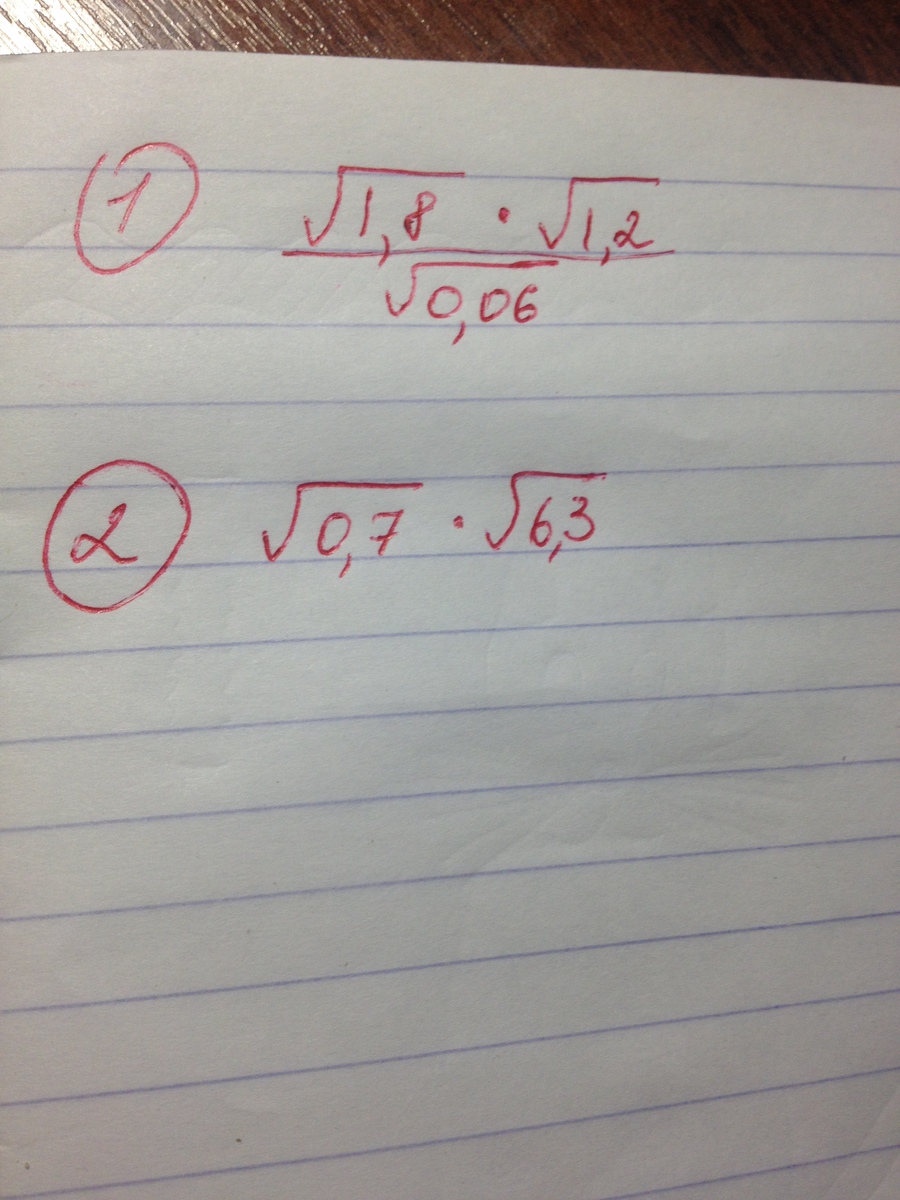 ① √1,8 · √1,2
√0,06
② √0,7 · √6,3